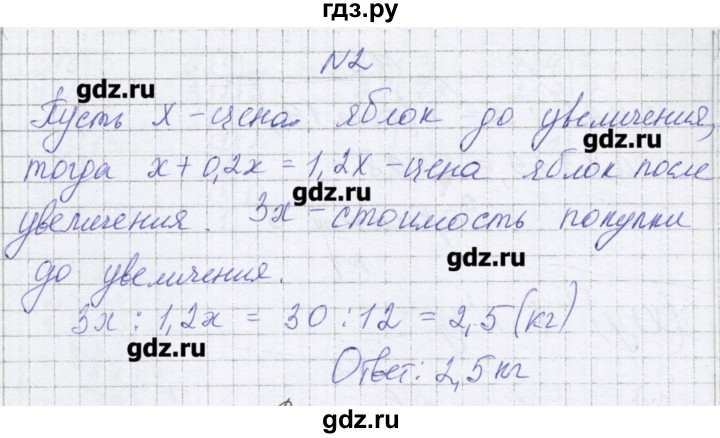 гдз.ру
N2
gdz.ru
Пусть x - цена яблок до увеличения,
gdz.ru
тогда x + 0,2x = 1,2x - цена яблок после
gdz.ru
увеличения. 3x - стоимость покупки
gdz.ru
до увеличения.
3x : 1,2x = 30 : 12 = 2,5 (кг)
gdz.ru
Ответ: 2,5 кг
gdz.ru